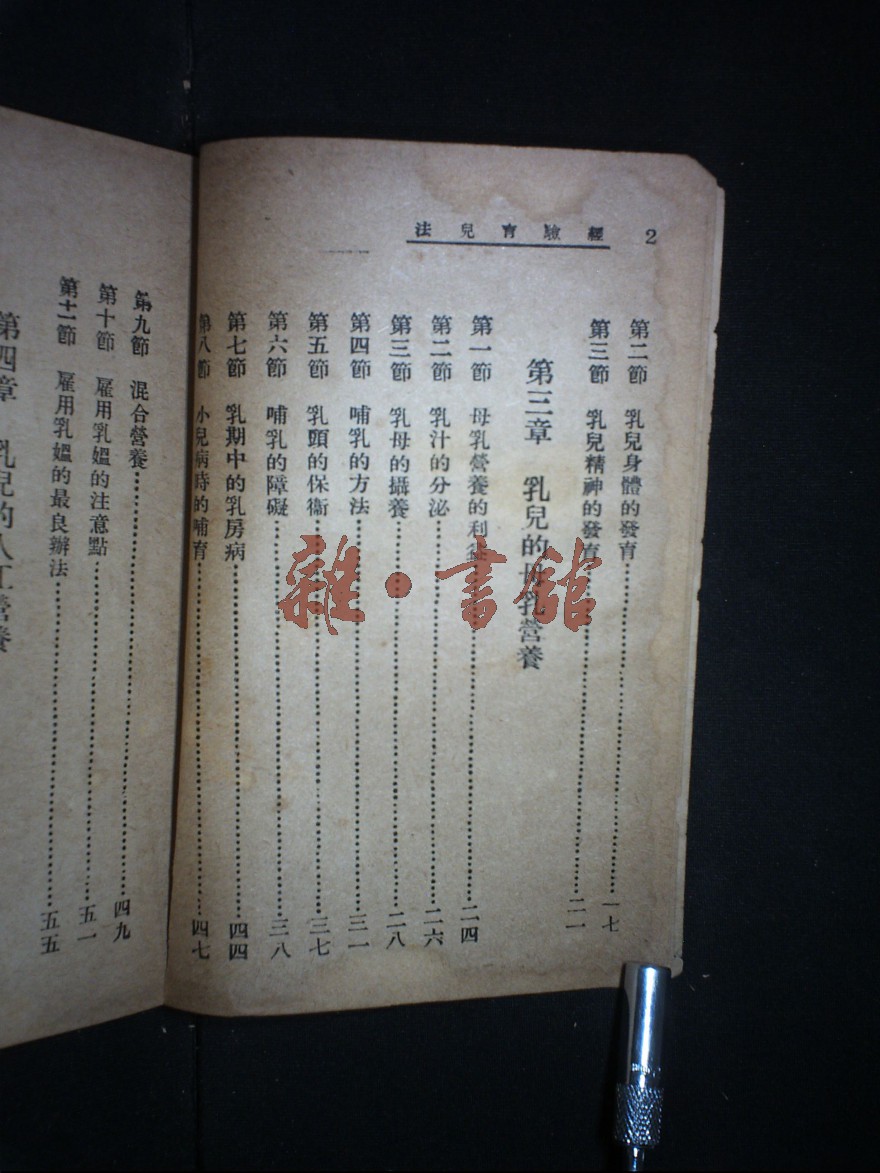 2 經驗育兒法
第二節 乳兒身體的發育……一七
第三節 乳兒精神的發育……二一
第三章 乳兒的母乳營養
第一節 母乳營養的利益……二四
第二節 乳汁的分泌……二六
第三節 乳母的攝養……二八
第四節 哺乳的方法……三一
第五節 乳頭的保衞……三七
第六節 哺乳的障礙……三八
第七節 乳期中的乳房病……四四
第八節 小兒病時的哺育……四七
第九節 混合營養……四九
第十節 雇用乳媼的注意點……五一
第十一節 雇用乳媼的最良辦法……五五
第四章 乳兒的人工營養
雜·書館